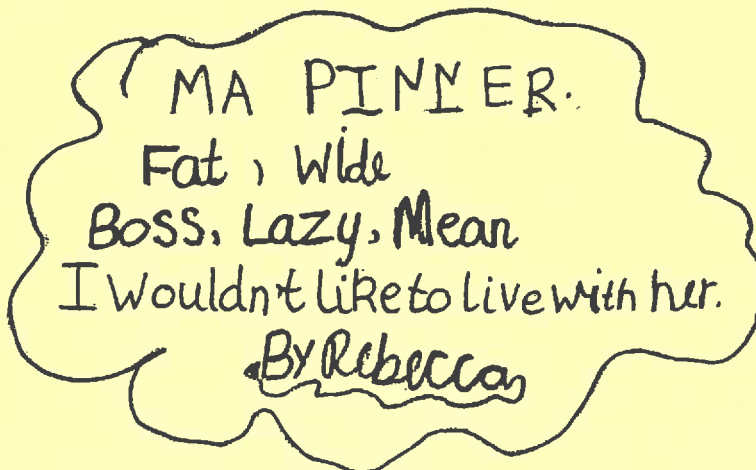 MA PINNER.
Fat, Wide
Boss, Lazy, Mean
I wouldn't like to live with her.
By Rebecca